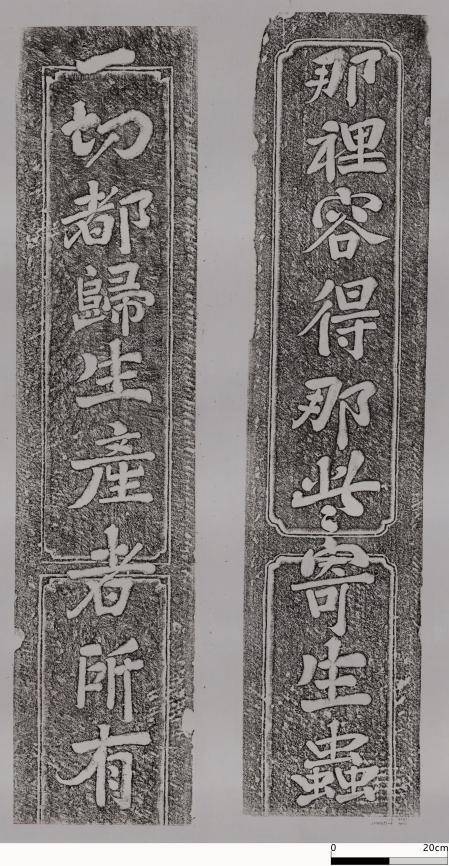 一切都歸生產者所有
那裡容得那些寄生蟲
0 20cm